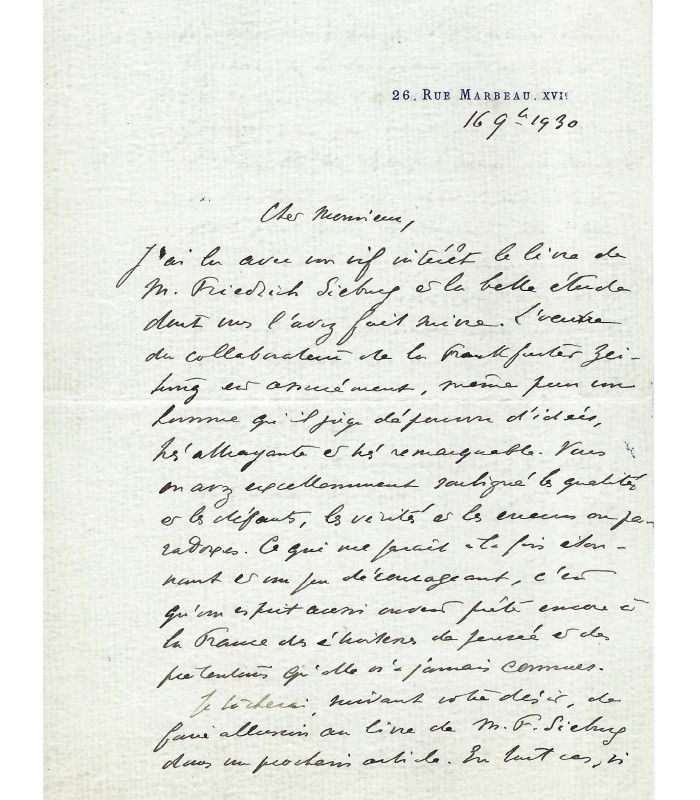 26, RUE MARBEAU. XVIe
16 9bre 1930
Cher Monsieur,
J'ai lu avec un vif intérêt le livre de
M. Friedrich Sieburg et la belle étude
dont vous l'avez fait suivre. L'œuvre
du collaborateur de la Frankfurter Zei-
tung est assurément, même pour un
homme qu'il juge dépourvu d'idées,
très attrayante et très remarquable. Vous
en avez excellemment souligné les qualités
et les défauts, les vérités et les erreurs ou pa-
radoxes. Ce qui me paraît à la fois éton-
nant et un peu décourageant, c'est
qu'un esprit aussi ouvert prête encore à
la France des étroitesses de pensée et des
prétentions qu'elle n'a jamais connues.
Je tâcherai, suivant votre désir, de
faire allusion au livre de M. F. Sieburg
dans un prochain article. En tout cas, si